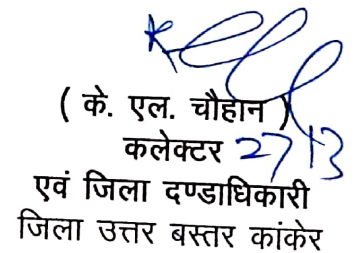 ( के. एल. चौहान )
कलेक्टर 27/3
एवं जिला दण्डाधिकारी
जिला उत्तर बस्तर कांकेर